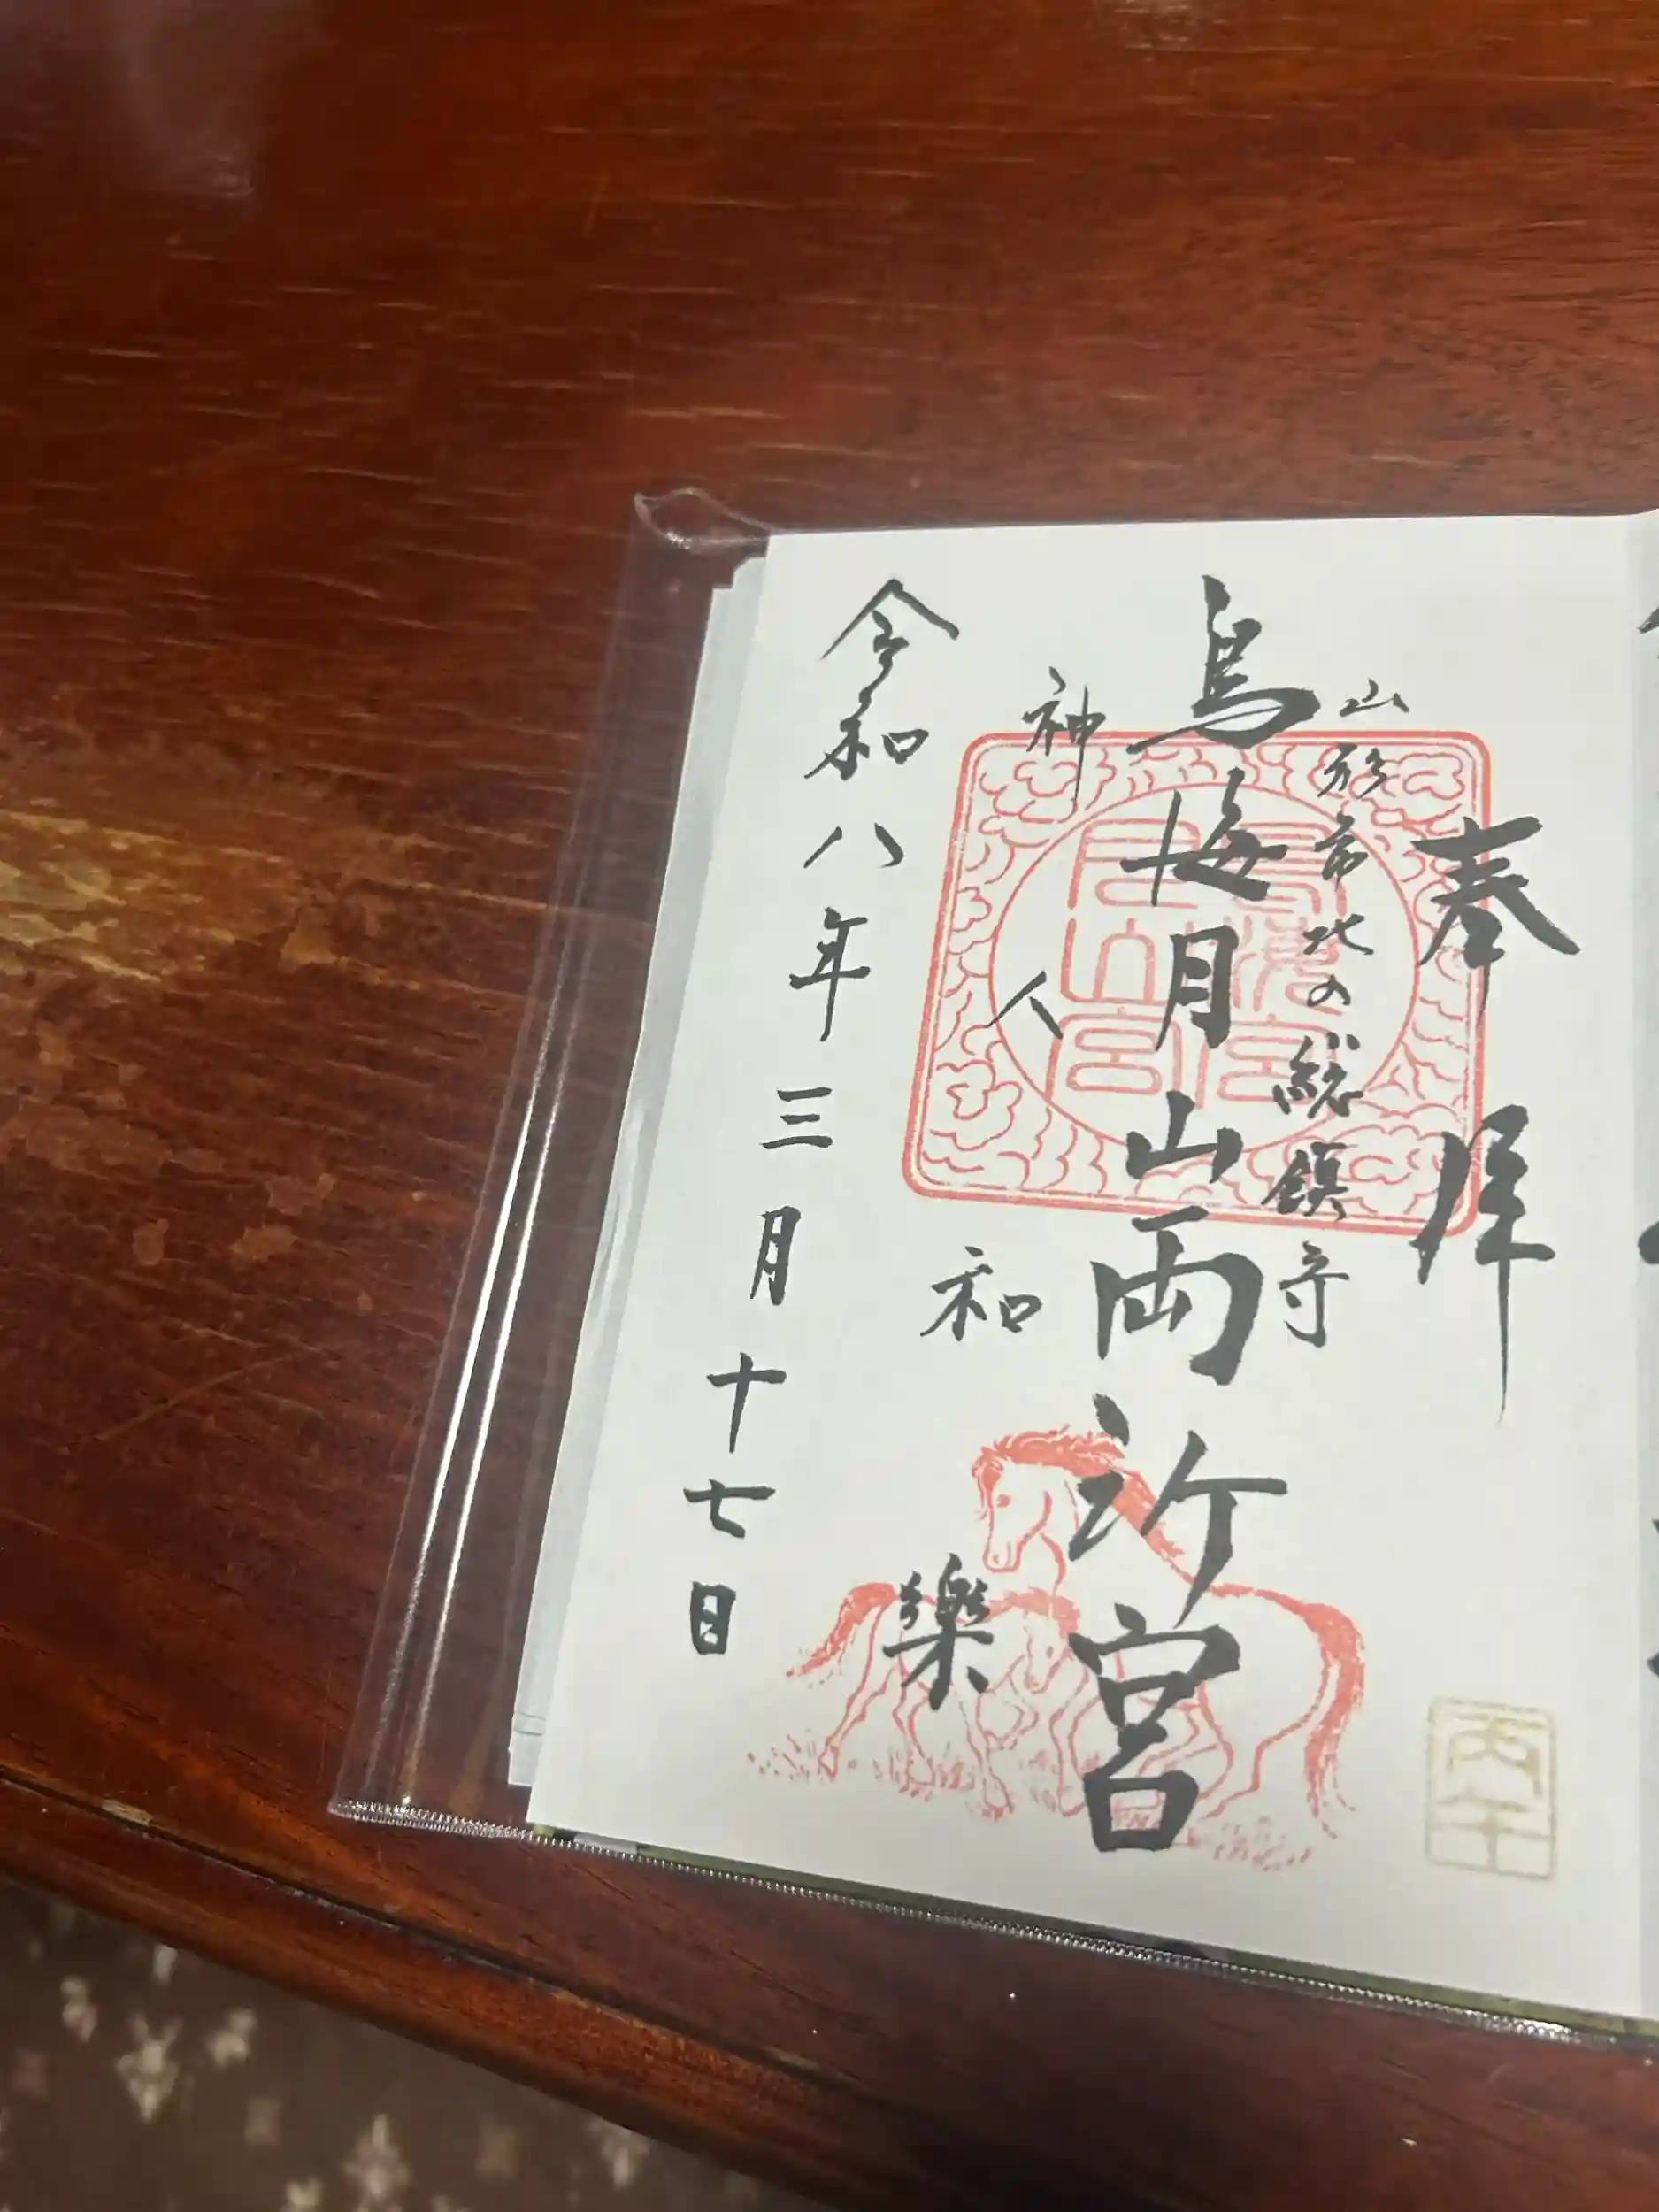 奉拝
山形市北の総鎮守
鳥海月山両所宮
神人和楽
令和八年三月十七日
丙午